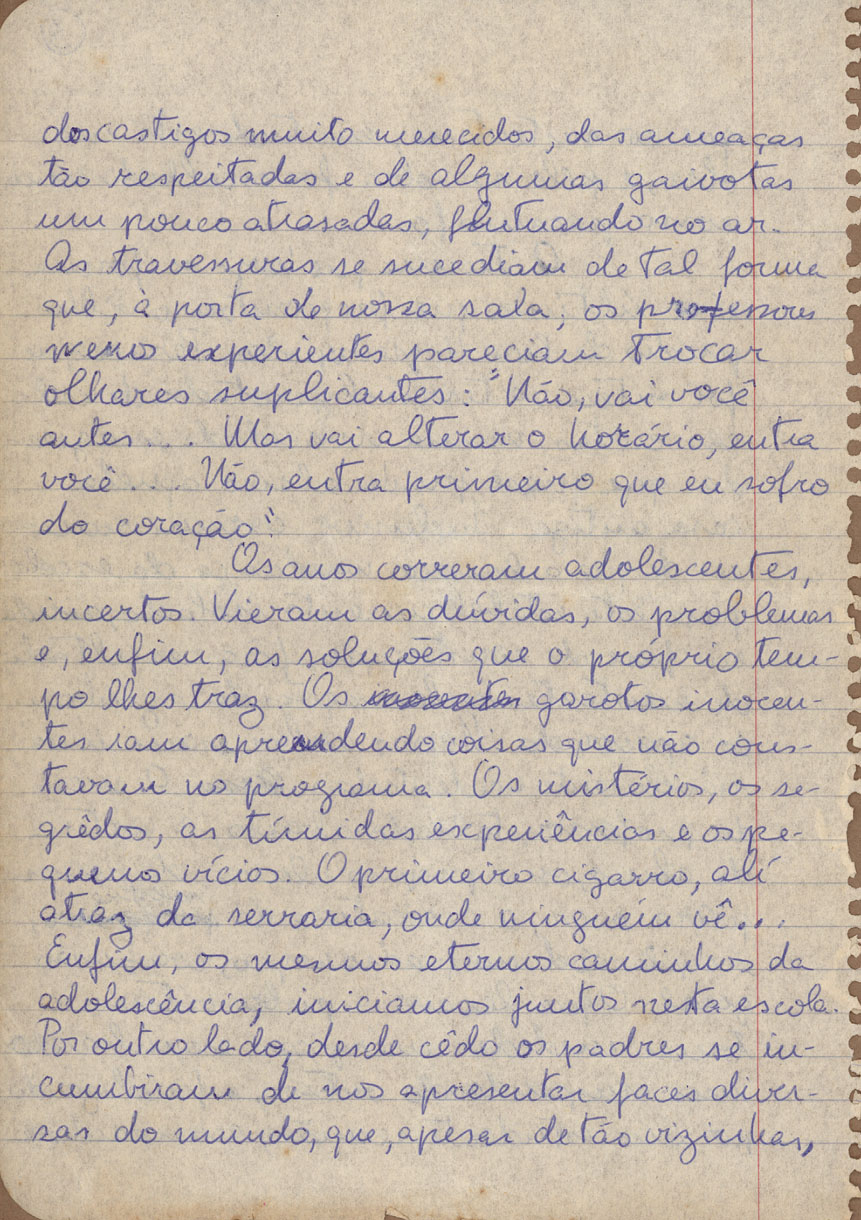 dos castigos muito merecidos, das ameaças
tão respeitadas e de algumas gaivotas
um pouco atrasadas, flutuando no ar.
As travessuras se sucediam de tal forma
que, à porta de nossa sala, os professores
menos experientes pareciam trocar
olhares suplicantes: "Não, vai você
antes... Mas vai alterar o horário, entra
você... Não, entra primeiro que eu sofro
do coração"
Os anos correram adolescentes,
incertos. Vieram as dúvidas, os problemas
e, enfim, as soluções que o próprio tem-
po lhes traz. Os garotos inocen-
tes iam aprendendo coisas que não cons-
tavam no programa. Os mistérios, os se-
grêdos, as tímidas experiências e os pe-
quenos vícios. O primeiro cigarro, ali
atraz da serraria, onde ninguém vê...
Enfim, os mesmos eternos caminhos da
adolescência, iniciamos juntos nesta escola.
Por outro lado, desde cêdo os padres se in-
cumbiram de nos apresentar faces diver-
sas do mundo, que, apesar de tão vizinhas,